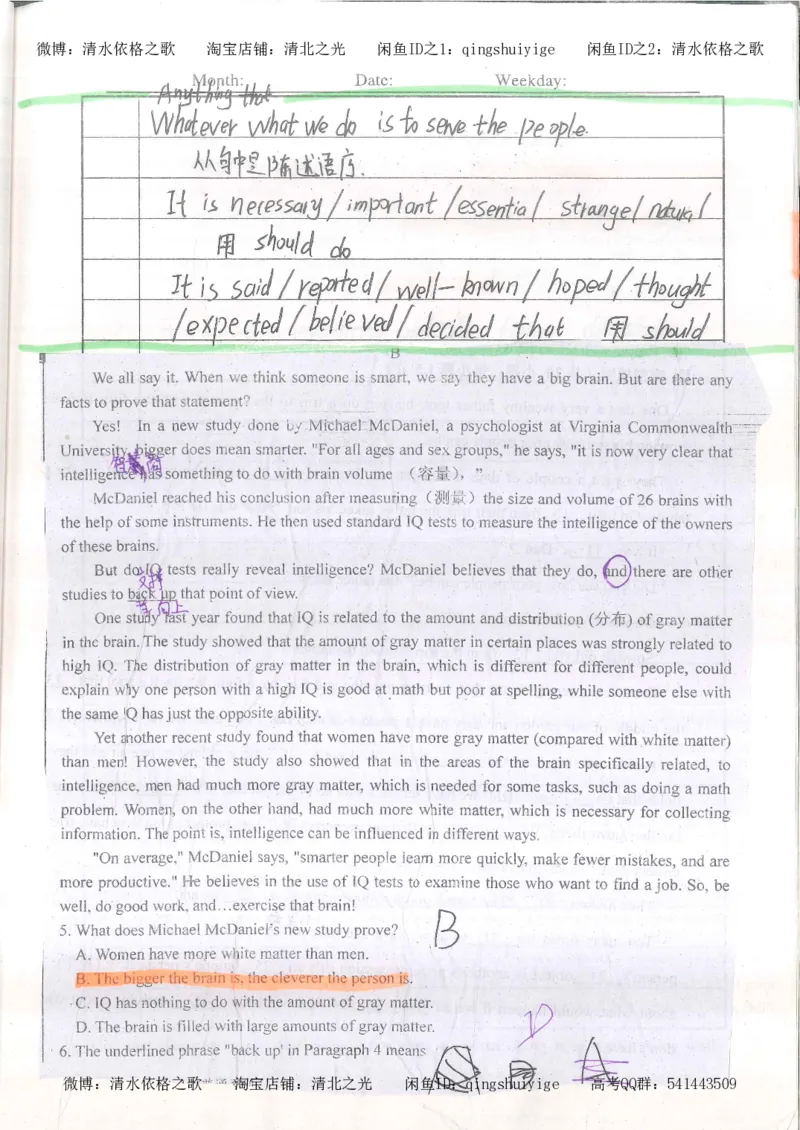 微博：清水依格之歌 淘宝店铺：清北之光 闲鱼ID之1：qingshuiyige 闲鱼ID之2：清水依格之歌
Month: Date: Weekday:
Anything that
Whatever what we do is to serve the people.
从句中是陈述语序.
It is necessary / important / essential strange / natural
用 should do
It is said / reported / well-known / hoped / thought
/ expected / believed / decided that 用 should
B
We all say it. When we think someone is smart, we say they have a big brain. But are there any
facts to prove that statement?
Yes! In a new study done by Michael McDaniel, a psychologist at Virginia Commonwealth
University, bigger does mean smarter. "For all ages and sex groups," he says, "it is now very clear that
intelligence has something to do with brain volume （容量）, ”
McDaniel reached his conclusion after measuring（测量）the size and volume of 26 brains with
the help of some instruments. He then used standard IQ tests to measure the intelligence of the owners
of these brains.
But do IQ tests really reveal intelligence? McDaniel believes that they do, and there are other
studies to back up that point of view.
One study last year found that IQ is related to the amount and distribution (分布) of gray matter
in the brain. The study showed that the amount of gray matter in certain places was strongly related to
high IQ. The distribution of gray matter in the brain, which is different for different people, could
explain why one person with a high IQ is good at math but poor at spelling, while someone else with
the same IQ has just the opposite ability.
Yet another recent study found that women have more gray matter (compared with white matter)
than men! However, the study also showed that in the areas of the brain specifically related, to
intelligence, men had much more gray matter, which is needed for some tasks, such as doing a math
problem. Women, on the other hand, had much more white matter, which is necessary for collecting
information. The point is, intelligence can be influenced in different ways.
"On average," McDaniel says, "smarter people learn more quickly, make fewer mistakes, and are
more productive." He believes in the use of IQ tests to examine those who want to find a job. So, be
well, do good work, and…exercise that brain!
5. What does Michael McDaniel's new study prove? B
A. Women have more white matter than men.
B. The bigger the brain is, the cleverer the person is.
C. IQ has nothing to do with the amount of gray matter.
D. The brain is filled with large amounts of gray matter.
D
6. The underlined phrase "back up' in Paragraph 4 means
微博：清水依格之歌 淘宝店铺：清北之光 闲鱼ID：qingshuiyige 高考QQ群：541443509